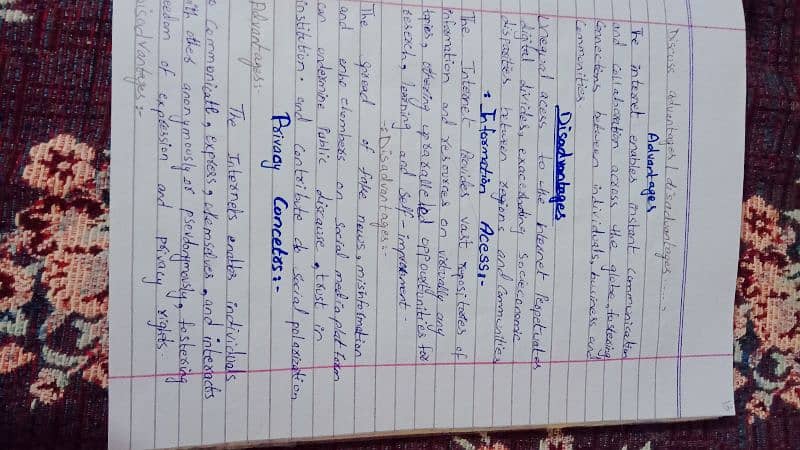 Discuss advantages / disadvantages......,
Advantages
The internet enables instant communication
and collaboration across the globe, fostering
connections between individuals, business and
Communities
Disadvantages
Unequal acess to the internet perpetuates
digital divides, exacerbating socioeconomic
disparities between regions and communities
:- Information Acess:-
The Internet Provides vast repositories of
information and resources on virtually any
topics, offering upparalleled oppourtinities for
research, learning and self-improvment.
:-Disadvantages:-
The spread of fake news, misinformation
and echo chembers on social media platform
can undermine Public discourse, trust in
institution. and contribute to social polarization
Privacy Concetos:-
Advantages:
The Internets enables individuals
Communicate, express, themselves, and interacts
others anonymously or pseudonymously, fostering
freedom of expression and privacy rights.
Disadvantages:-